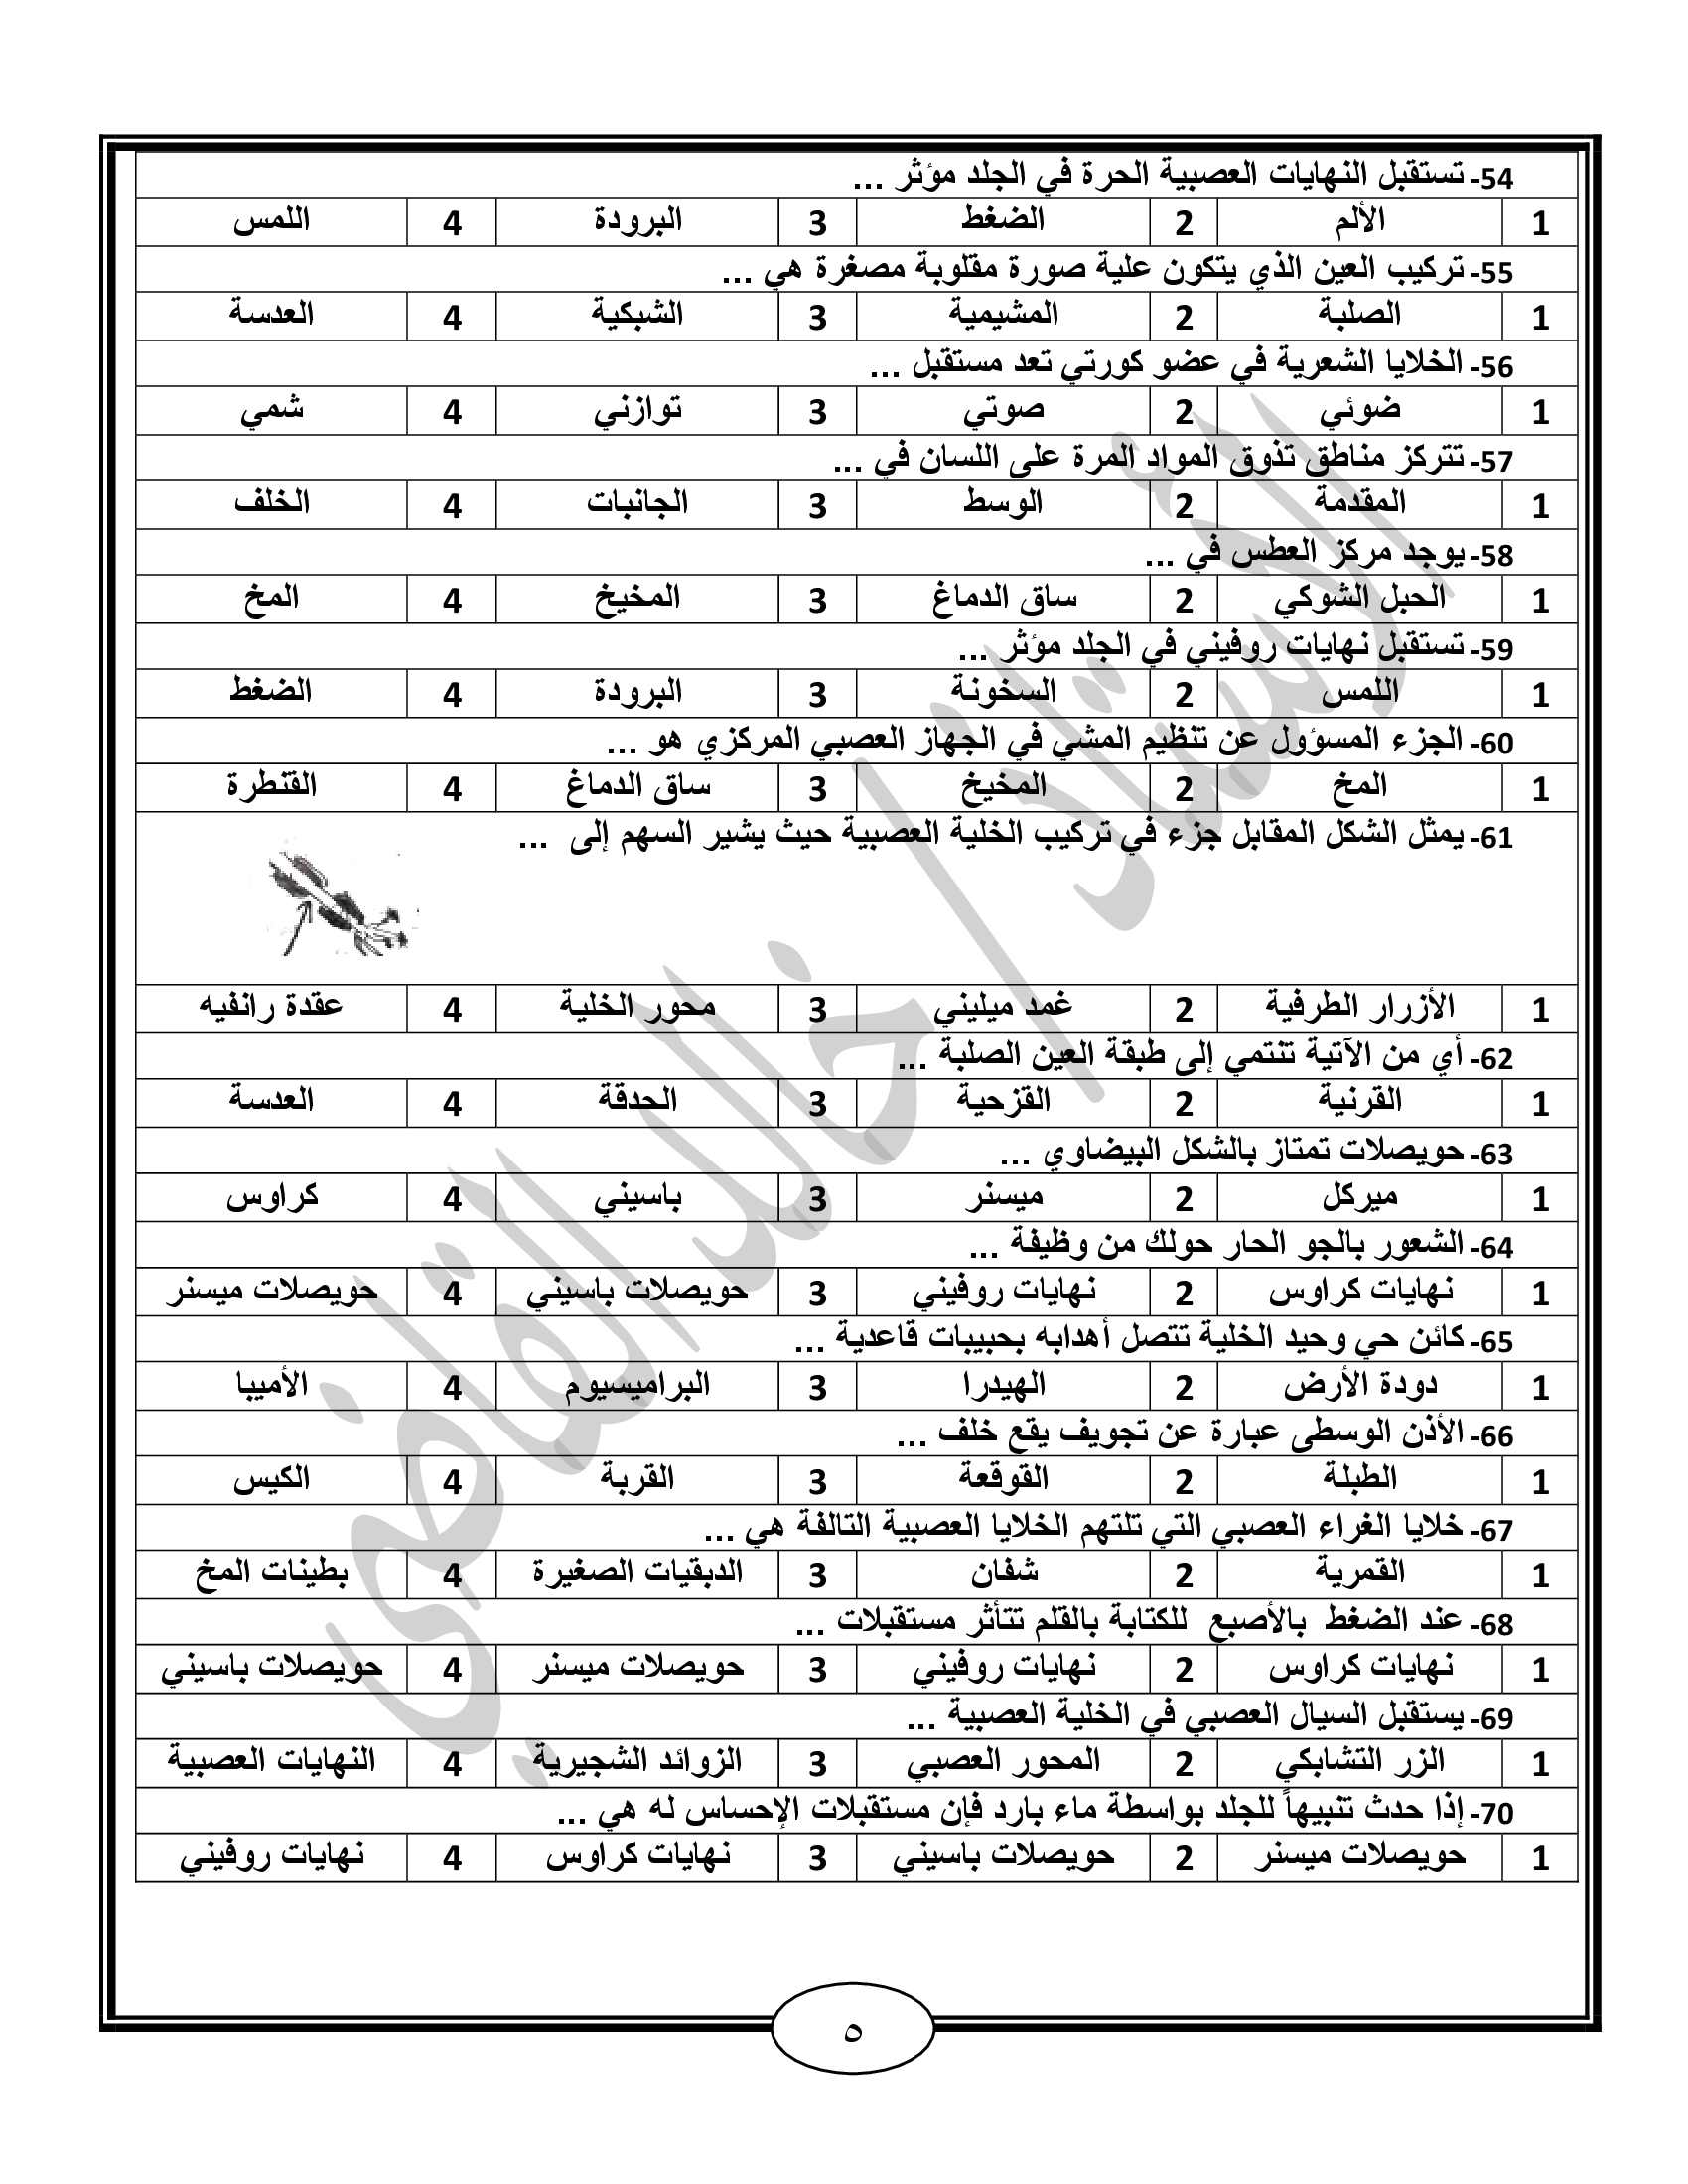 54- تستقبل النهايات العصبية الحرة في الجلد مؤثر ...
1 الألم 2 الضغط 3 البرودة 4 اللمس
55- تركيب العين الذي يتكون علية صورة مقلوبة مصغرة هي ...
1 الصلبة 2 المشيمية 3 الشبكية 4 العدسة
56- الخلايا الشعرية في عضو كورتي تعد مستقبل ...
1 ضوئي 2 صوتي 3 توازني 4 شمي
57- تتركز مناطق تذوق المواد المرة على اللسان في ...
1 المقدمة 2 الوسط 3 الجانبات 4 الخلف
58- يوجد مركز العطس في ...
1 الحبل الشوكي 2 ساق الدماغ 3 المخيخ 4 المخ
59- تستقبل نهايات روفيني في الجلد مؤثر ...
1 اللمس 2 السخونة 3 البرودة 4 الضغط
60- الجزء المسؤول عن تنظيم المشي في الجهاز العصبي المركزي هو ...
1 المخ 2 المخيخ 3 ساق الدماغ 4 القنطرة
61- يمثل الشكل المقابل جزء في تركيب الخلية العصبية حيث يشير السهم إلى ...
1 الأزرار الطرفية 2 غمد ميليني 3 محور الخلية 4 عقدة رانفيه
62- أي من الآتية تنتمي إلى طبقة العين الصلبة ...
1 القرنية 2 القزحية 3 الحدقة 4 العدسة
63- حويصلات تمتاز بالشكل البيضاوي ...
1 ميركل 2 ميسنر 3 باسيني 4 كراوس
64- الشعور بالجو الحار حولك من وظيفة ...
1 نهايات كراوس 2 نهايات روفيني 3 حويصلات باسيني 4 حويصلات ميسنر
65- كائن حي وحيد الخلية تتصل أهدابه بحبيبات قاعدية ...
1 دودة الأرض 2 الهيدرا 3 البراميسيوم 4 الأميبا
66- الأذن الوسطى عبارة عن تجويف يقع خلف ...
1 الطبلة 2 القوقعة 3 القربة 4 الكيس
67- خلايا الغراء العصبي التي تلتهم الخلايا العصبية التالفة هي ...
1 القمرية 2 شفان 3 الدبقيات الصغيرة 4 بطينات المخ
68- عند الضغط بالأصبع للكتابة بالقلم تتأثر مستقبلات ...
1 نهايات كراوس 2 نهايات روفيني 3 حويصلات ميسنر 4 حويصلات باسيني
69- يستقبل السيال العصبي في الخلية العصبية ...
1 الزر التشابكي 2 المحور العصبي 3 الزوائد الشجيرية 4 النهايات العصبية
70- إذا حدث تنبيهاً للجلد بواسطة ماء بارد فإن مستقبلات الإحساس له هي ...
1 حويصلات ميسنر 2 حويصلات باسيني 3 نهايات كراوس 4 نهايات روفيني
الأستاذ / خالد القاضي
٥